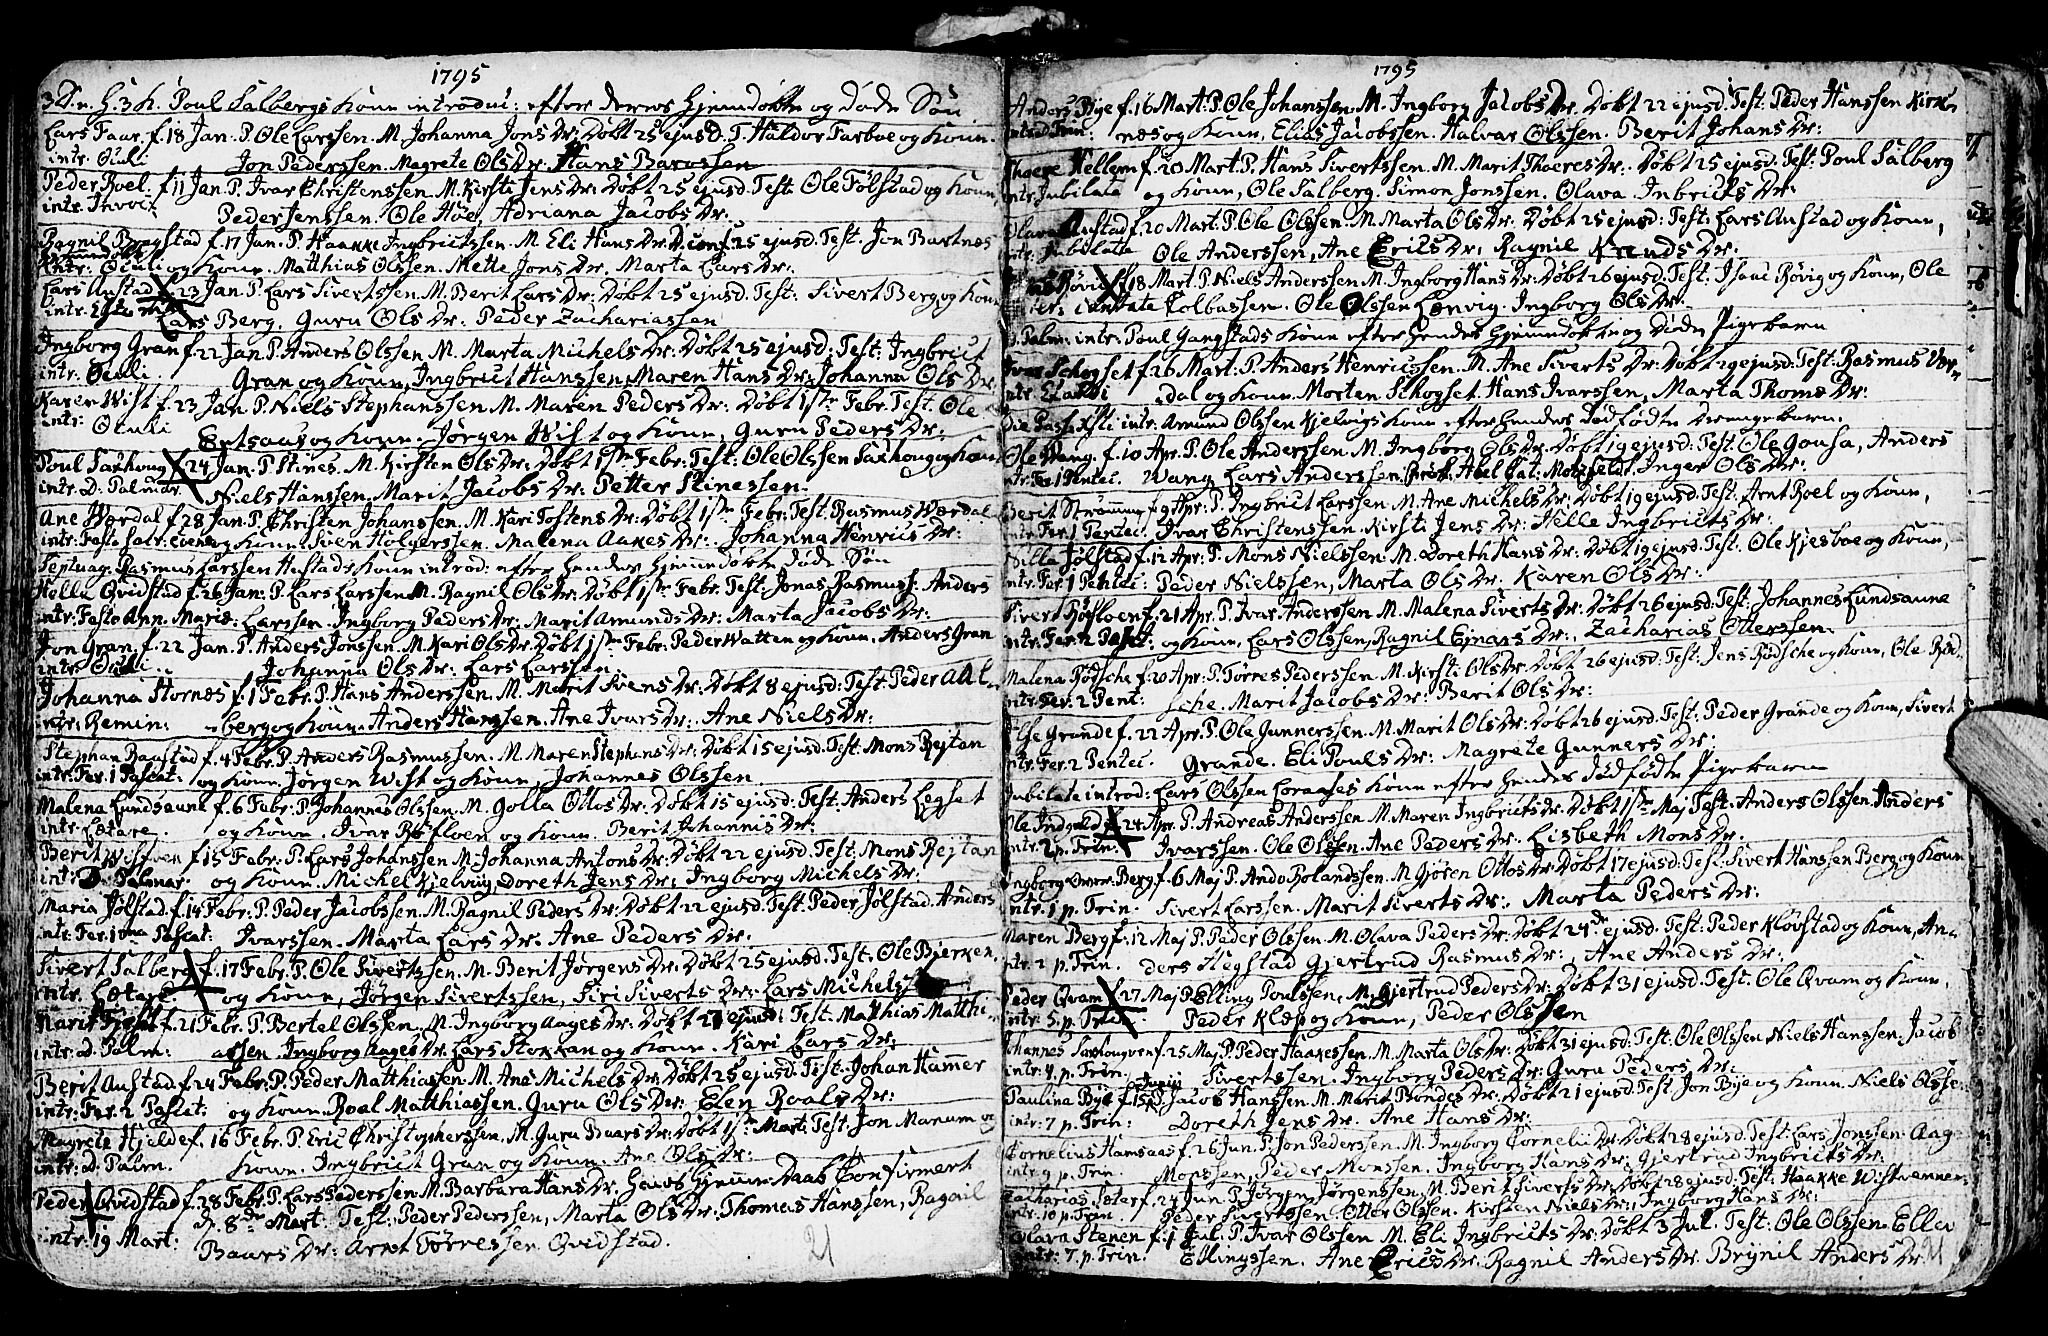 1795
3 D. e. H. 3 K. Poul Salbergs Kone introduc: efter deres Hjemdøbte og døde Søn
Lars Faar. f. 18 Jan. P. Ole Larssen. M. Johanna Jons Dr: Døbt 25 ejusd. T. Haldor Farboe og Kone.
intr. Oculi Jon Pederssen. Magrete Ols Dr. Hans Barossen
Peder Roel. f. 11 Jan. P. Ivar Christenssen. M. Kirsti Jens Dr: Døbt 25 ejusd. Test. Ole Følstad og Kone,
intr. Invoc: Peder Jenssen. Ole Høe, Adriana Jacobs Dr.
Ragnil Bragstad f. 17 Jan. P. Haakke Ingbrictssen. M. Eli Hans Dr. D. conf. 25 ejusd. Test. Jon Bartnæs
intr: Oculi og Kone. Matthias Olssen. Mette Jons Dr. Marta Lars Dr.
Lars Austad f. 23 Jan. P. Lars Sivertssen. M. Berit Lars Dr: Døbt 25 ejusd. Test: Sivert Berg og Kone
intr. Lars Berg. Guru Ols Dr: Peder Zachariassen
Ingborg Gran f. 22 Jan. P. Anders Olssen M. Marta Michels Dr: Døbt 25 ejusd: Test: Ingbrict
intr. Oculi. Gran og Kone, Ingbrict Hanssen, Maren Hans Dr: Johanna Ols Dr.
Karen Wist f. 23 Jan. P. Niels Stephanssen. M. Maren Peders Dr: Døbt 1ste Febr. Test. Ole
intr: Oculi og Kone. Jørgen Wist og Kone, Guru Peders Dr.
Poul Saxhoug f. 24 Jan. P. Stines. M. Kirsten Ols Dr: Døbt 1ste Febr: Test: Ole Olssen Saxhoug og Kone,
intr. D. Palmar. Niels Hanssen. Marit Jacobs Dr: Petter Stinessen.
Ane Wærdal f. 28 Jan. P. Christen Johanssen. M. Kari Tostens Dr: Døbt 1ste Febr: Test: Rasmus Wærdal
og Kone. Sven Holgerssen. Malena Aakes Dr: Johanna Henrics Dr:
Septuag: Rasmus Larssen Austads Kone introd: efter hendes Hjemdøbte døde Søn
Helle Qvidstad f. 26 Jan: P. Lars Larssen M. Ragnil Ols Dr: Døbt 1ste Febr: Test: Jonas Rasmuss: Anders
intr: Festo Ann. Mariæ: Larssen. Ingborg Peders Dr; Marit Amunds Dr: Marta Jacobs Dr:
Jon Gran. f. 22 Jan. P. Anders Jonssen. M. Kari Ols Dr: Døbt 1ste Febr: Peder Watten og Kone. Anders Gran
intr: Oculi. Johanna Ols Dr: Lars Larssen.
Johanna Hornæs f. 1 Febr. P. Hans Anderssen. M. Marit Svens Dr: Døbt 8 ejusd: Test: Peder Aal-
intr: Remin: berg og Kone. Anders Hanssen. Ane Ivars Dr: Ane Niels Dr:
Stephan Raastad f. 4 Febr. P. Anders Rasmussen. M. Maren Stephans Dr: Døbt 15 ejusd. Test: Mons Rejtan
intr: Fer. 1 Pascat: og Kone. Jørgen Wist og Kone. Johannes Olssen
Malena Lundsaune f. 6 Febr. P. Johannes Olssen. M. Golla Ottos Dr: Døbt 15 ejusd: Test: Anders Legset
intr: Lætare. og Kone. Ivar Røfloen og Kone. Berit Johannis Dr:
Berit Wistven f. 15 Febr. P. Lars Johanssen M. Johanna Antons Dr: Døbt 22 ejusd. Test. Mons Rejtan
intr: D. Palmar og Kone. Michel Kjelving. Doreth Jens Dr: Ingborg Michels Dr.
Maria Jølstad. f. 14 Febr: P. Peder Jacobssen. M. Ragnil Peders Dr: Døbt 22 ejusd. Test. Peder Jølstad. Anders
intr: Fer. 1ma Pascat: Ivarssen. Marta Lars Dr. Ane Peders Dr:
Sivert Salberg f. 17 Febr. P. Ole Sivertssen. M. Berit Jørgens Dr: Døbt 25 ejusd. Test. Ole Bjerken,
intr. Lætare. og Kone, Jørgen Sivertssen, Siri Siverts Dr: Lars Michels
Marit f. 21 Febr. P. Bertel Olssen. M. Ingborg Aages Dr: Døbt ejusd: Test. Matthias Matthi-
intr: D. Palm: assen. Ingborg Aages Dr. Lars Stokkan og Kone. Kari Lars Dr:
Berit Austad. f. 24 Febr: P. Peder Matthiassen. M. Ane Michels Dr: Døbt 25 ejusd: Test: Johan Hammer
intr: Fer. 2 Pascat: og Kone. Roal Matthiassen. Guru Ols Dr: Elen Roals Dr:
Magrete Hjelde f. 16 Febr. P. Eric Christophersen. M. Guru Baars Dr: Døbt 1ste Mart: Test. Jon Manum og
intr: D. Palm. Kone. Ingbrict Gran og Kone. Ane Ols Dr:
Peder Qvidstad f. 28 Febr: P. Lars Pederssen. M. Barbara Hans Dr: Hans Hjemme Daab Confirmert
d. 8de Mart: Test: Peder Pederssen, Marta Ols Dr. Thomas Hanssen, Ragnil
intr: 19 Mart: Baars Dr: Arnt Tørressen Qvidstad.
21
1795
151
Anders Bye f. 16 Mart. P. Ole Johanssen. M. Ingborg Jacobs Dr. Døbt 22 ejusd. Test: Peder Hanssen Kirk-
næs og Kone, Elias Jacobssen. Halvar Olssen. Berit Johans Dr:
Thoere Hellem f. 20 Mart. P. Hans Sivertssen. M. Marit Thoeres Dr: Døbt 25 ejusd: Test: Poul Salberg
intr. Jubilate og Kone, Ole Salberg. Simon Jonssen. Olava Inbricts Dr:
Olava Austad f. 20 Mart: P. Ole Olssen. M. Marta Ols Dr: Døbt 25 ejusd: Test: Lars Austad og Kone,
intr. Jubilate Ole Anderssen, Ane Erics Dr: Ragnil Dr:
Røvig f. 18 Mart. P. Niels Anderssen. M. Ingborg Hans Dr: Døbt 26 ejusd. Test: Isaac Røvig og Kone, Ole
intr: Cantate Colbussen. Ole Olssen Lønvig. Ingborg Ols Dr:
D. Palm: intr: Poul Gangstads Kone efter hendes Hjemdøbte og døde Pigebarn
Ivar Schogset f. 26 Mart: P. Anders Henricssen. M. Ane Siverts Dr: Døbt 29 ejusd: Test: Rasmus Vær-
intr: Exaudi dal og Kone. Morten Schogset. Hans Ivarssen, Marta Thomæ Dr:
Die Pasch: intr: Amund Olssen Kjelvigs Kone efter hendes dødfødte Drengebarn.
Ole Wang. f. 10 Apr. P. Ole Anderssen. M. Ingborg Ols Dr. Døbt 19 ejusd: Test: Ole Gousa, Anders
intr: Fer 1 Pentec. Wang, Lars Anderssen. Abel Cat: Motzfeldt. Inger Ols Dr:
Berit Strømmen f. 9 Apr: P. Ingbrict Larssen. M. Ane Michels Dr: Døbt 19 ejusd: Test: Arnt Roel og Kone,
intr: Fer. 1 Pentec. Ivar Christenssen. Kirsti Jens Dr: Helle Ingbricts Dr:
Jølstad f. 12 Apr: P. Mons Nielssen. M. Doreth Hans Dr. Døbt 19 ejusd. Test. Ole Kjesboe og Kone,
intr: Fer. 1 Pentec: Peder Nielssen, Marta Ols Dr: Karen Ols Dr:
Sivert Røfloen f. 21 Apr. P. Ivar Anderssen M. Malena Siverts Dr: Døbt 26 ejusd: Test: Johannes Lundsaune
intr: Fer. 2 og Kone, Lars Olssen, Ragnil Ejnars Dr: Zacharias Otterssen.
Malena Rødsche f. 20 Apr: P. Tørres Pederssen. M. Kirsti Ols Dr: Døbt 26 ejusd: Test: Jens Rødsche og Kone, Ole Rød-
intr: Fer: 2 Pent: sche. Marit Jacobs Dr: Berit Ols Dr:
Else Grande f. 22 Apr. P. Ole Gunnerssen. M. Marit Ols Dr: Døbt 26 ejusd. Test: Peder Grande og Kone, Sivert
intr: Fer. 2 Pentec. Grande. Eli Pouls Dr: Magrete Gunners Dr:
Jubilate introd: Lars Olssen Loraases Kone efter hendes dødfødte Pigebarn
Ole f. 24 Apr. P. Andreas Anderssen. M. Maren Ingbricts Dr: Døbt 1ste Maj Test: Anders Olssen. Anders
intr: 2 p. Trin: Ivarssen. Ole Olssen. Ane Peders Dr: Lisbeth Mons Dr.
Ingborg Berg. f. 6 Maj P. Ando Rolandssen. M. Gjøren Ottos Dr: Døbt 17 ejusd: Test: Sivert Hanssen Berg og Kone
intr: 1 p. Trin. Sivert Larssen. Marit Siverts Dr: Marta Peders Dr:
Maren Berg f: 12 Maj P. Peder Olssen. M. Olava Peders Dr: Døbt 24de ejusd: Test: Peder Kløvstad og Kone, An-
intr. 2 p. Trin. ders Hegstad Gjertrud Rasmus Dr: Ane Anders Dr:
Peder Qvam f. 27 Maj P. Elling Poulssen, M. Gjertrud Peders Dr: Døbt 31 ejusd: Test: Ole Qvam og Kone,
intr: 5. p. Trin: Peder Klep og Kone, Peder Olssen
Johannes Saxhougven f. 25 Maj. P. Peder Haakessen. M. Marta Ols Dr: Døbt 31 ejusd: Test: Ole Olssen Niels Hanssen. Jacob
intr. 4 p. Trin. Sivertssen. Ingborg Peders Dr. Guru Peders Dr:
Paulina Bye f. 15 Junij P. Jacob Hanssen. M. Marit Trondes Dr: Døbt 21 ejusd: Test Jon Bye og Kone. Niels Olsse:
intr: 7 p. Trin: Doreth Jens Dr. Ane Hans Dr:
Cornelius Hamsaas f. 26 Jun. P. Jon Pederssen. M. Ingborg Cornelii Dr: Døbt 28 ejusd: Test. Lars Jonssen. Aage
intr. 9 p. Trin. Monssen, Peder Monssen. Ingborg Hans Dr: Gjertrud Ingbricts Dr:
Zacharias f. 24 Jun. P. Jørgen Jørgenssen. M. Berit Siverts Dr. Døbt 28 ejusd: Test: Haakke Wistvenner,
intr. 10 p. Trin. Peder Sivertssen. Otter Olssen. Kirsten Niels Dr: Ingborg Hans Dr:
Olava Stenen f. 1 Jul. P. Ivar Olssen M. Eli Ingbricts Dr: Døbt 3 Jul. Test: Ole Olssen. Ellev
intr: 7. p. Trin. Ellingssen. Ane Erics Dr. Ragnil Anders Dr. Brynil Anders Dr.
21